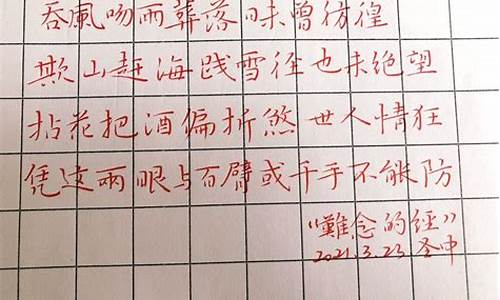 吞風吻雨葬落日未曾彷徨
欺山赶海践雪径也未绝望
拈花把酒偏折煞 世人情狂
凭这兩眼与百臂或千手不能防
“難念的經”
2021.3.23